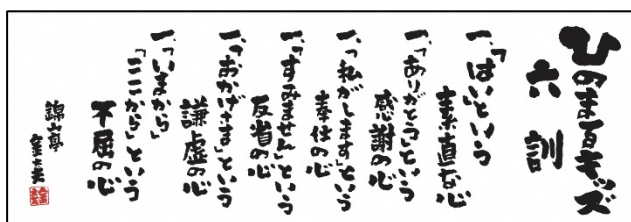 ひのまるキッズ
六訓
一、「はい」という
素直な心
一、「ありがとう」という
感謝の心
一、「私がします」という
奉仕の心
一、「すみません」という
反省の心
一、「おかげさま」という
謙虚の心
一、「いまから」
「ここから」という
不屈の心
錦山亭